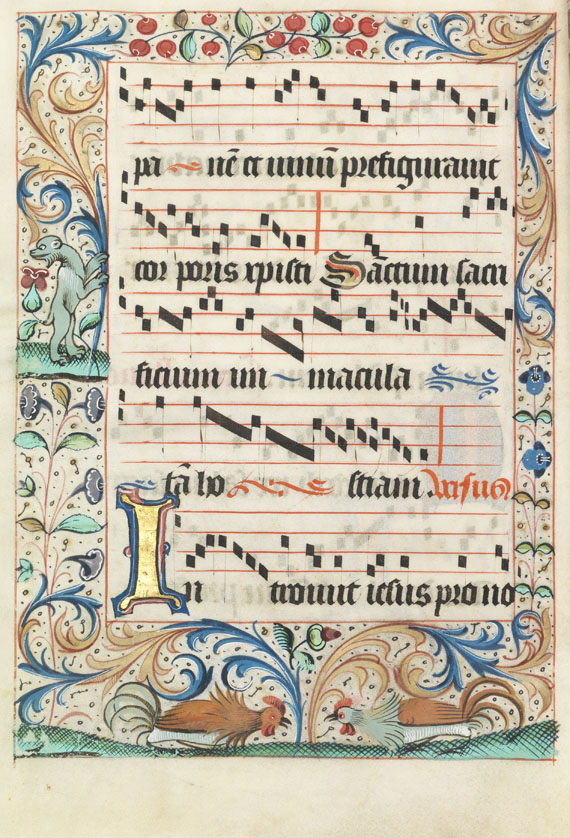 pa nē et uinū prefigurauit
cor poris xpisti Sāctum sacri
ficium im macula
tā ho stiam Versus
In troiuit iesus pro no